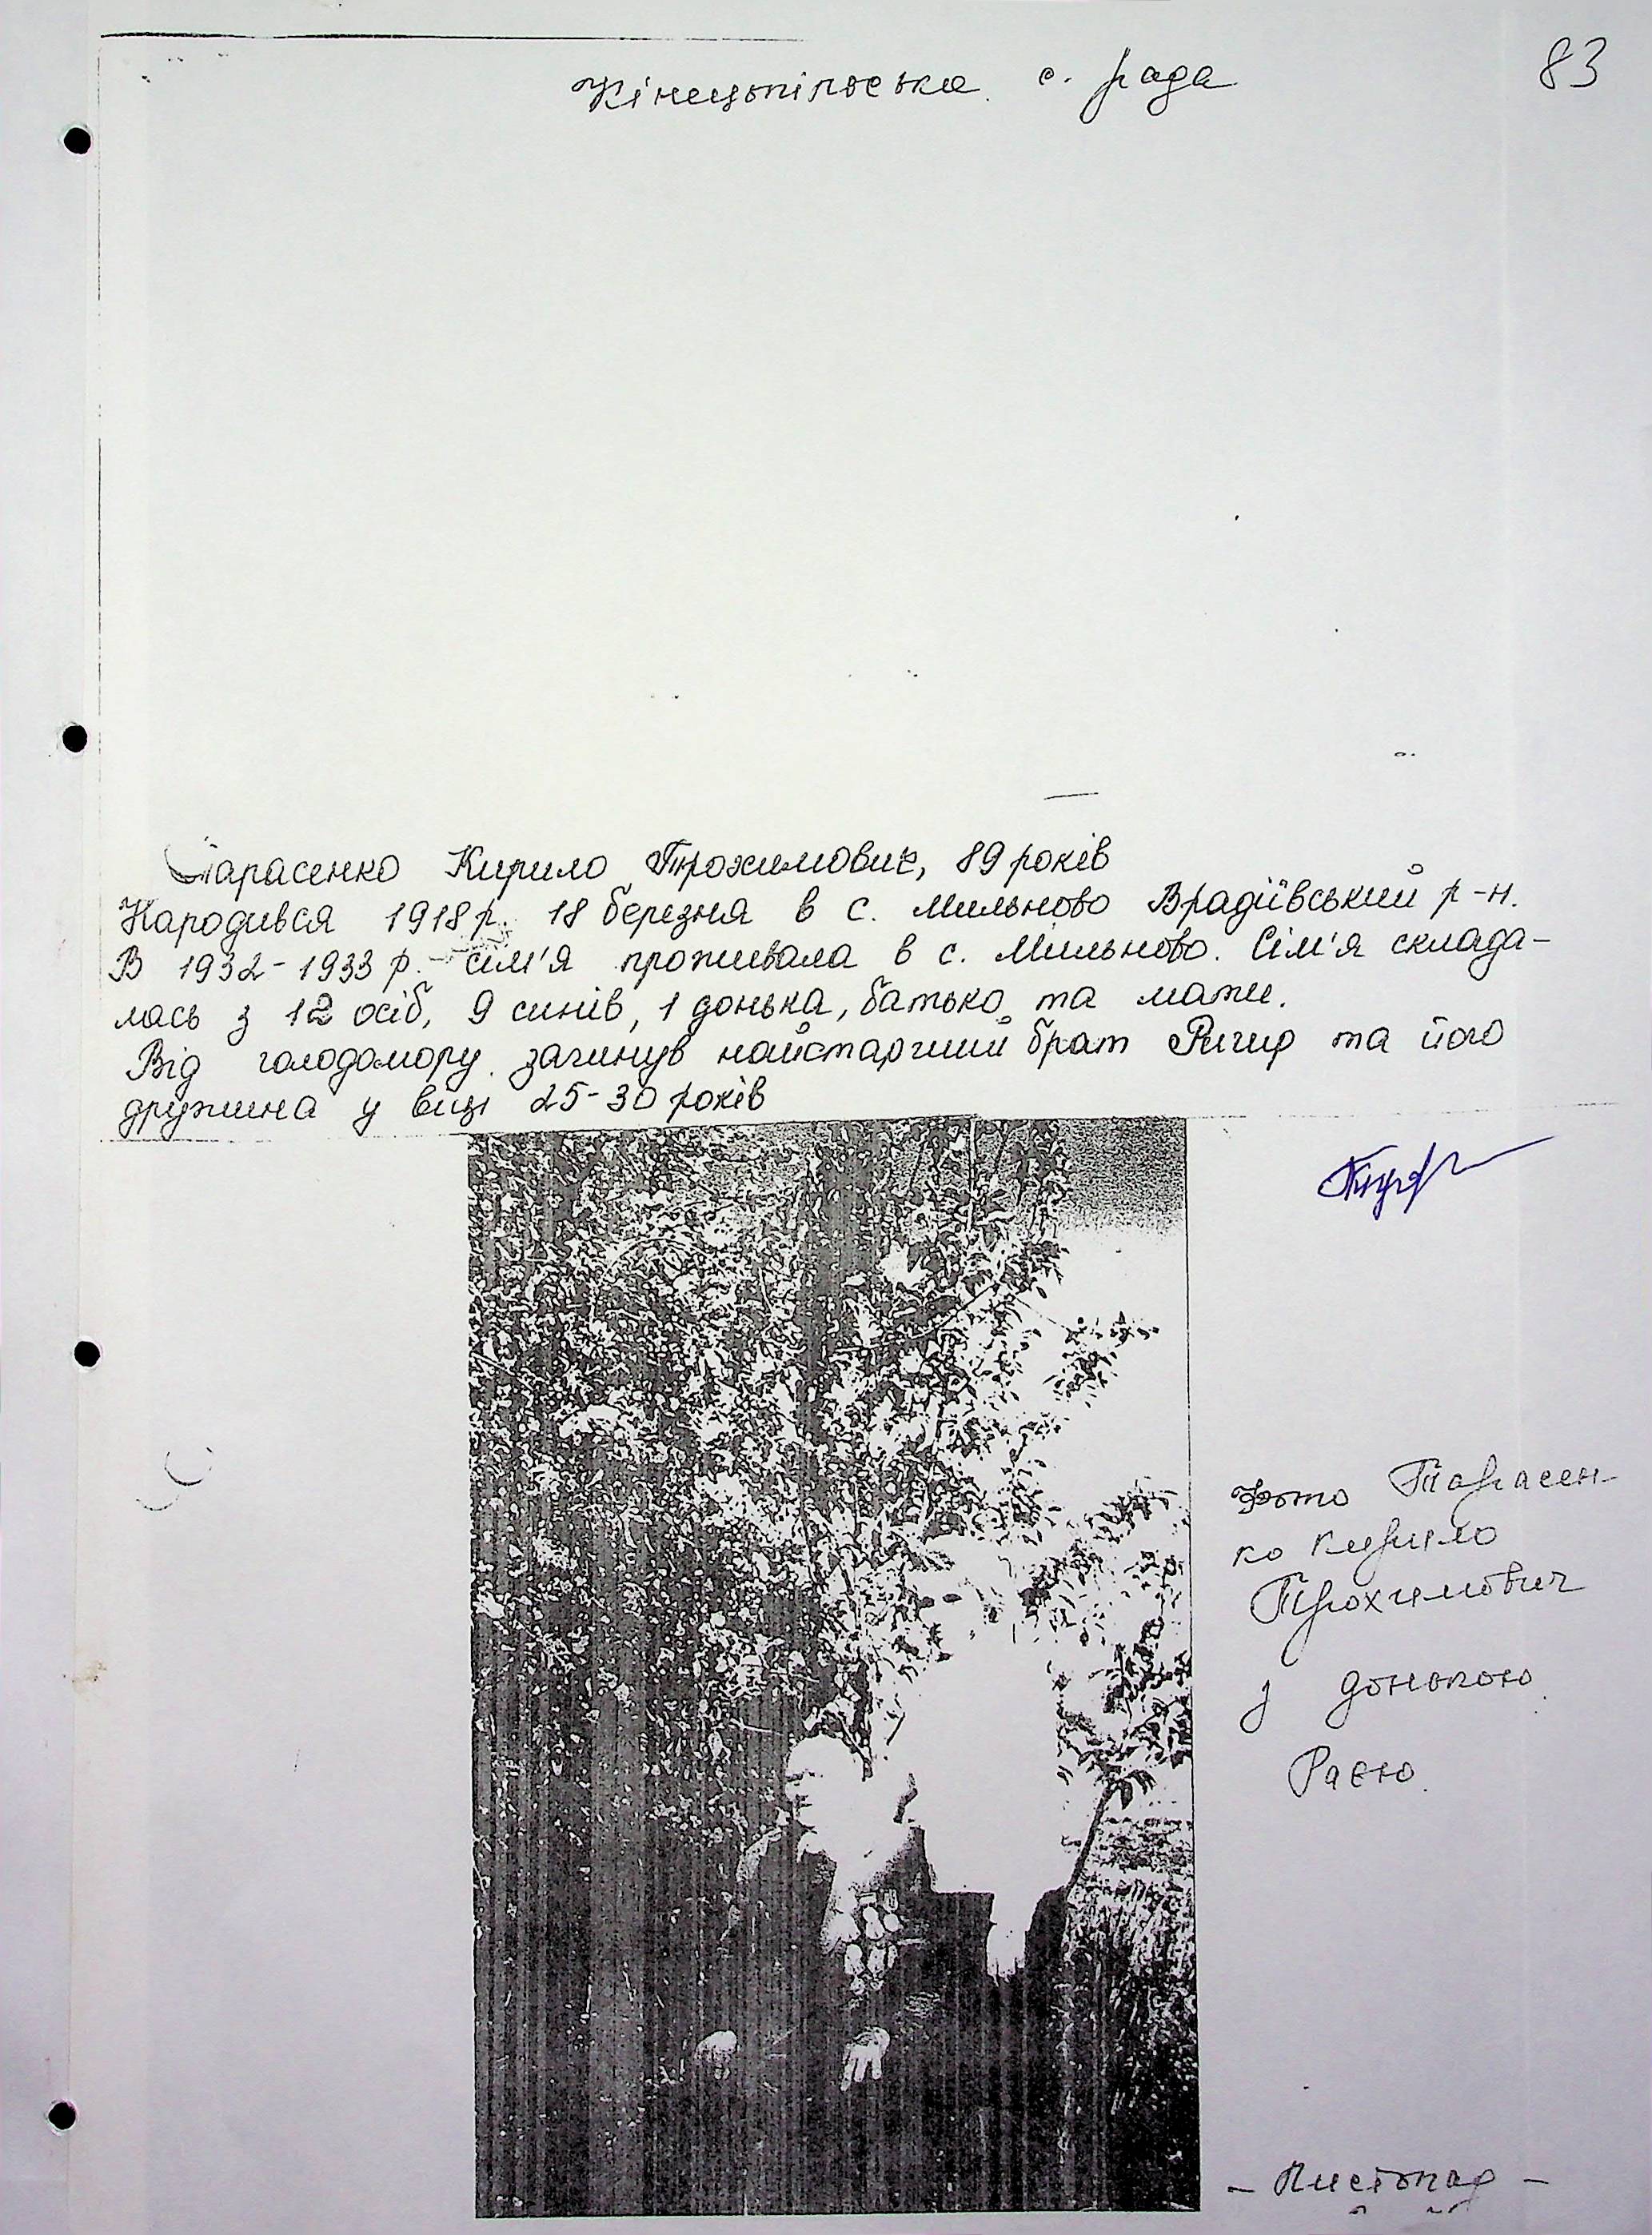 Кінецьпільська с. рада
83
Тарасенко Кирило Трохимович, 89 років
Народився 1918 р. 18 березня в с. Мильново Врадіївський р-н.
В 1932-1933 р. - сім'я проживала в с. Мильново. Сім'я склада-
лась з 12 осіб, 9 синів, 1 донька, батько та мати.
Від голодомору загинув найстарший брат та його
дружина у віці 25-30 років
Фото Тарасен-
ко Кирило
Трохимович
з донькою
Раєю.
- Листопад -